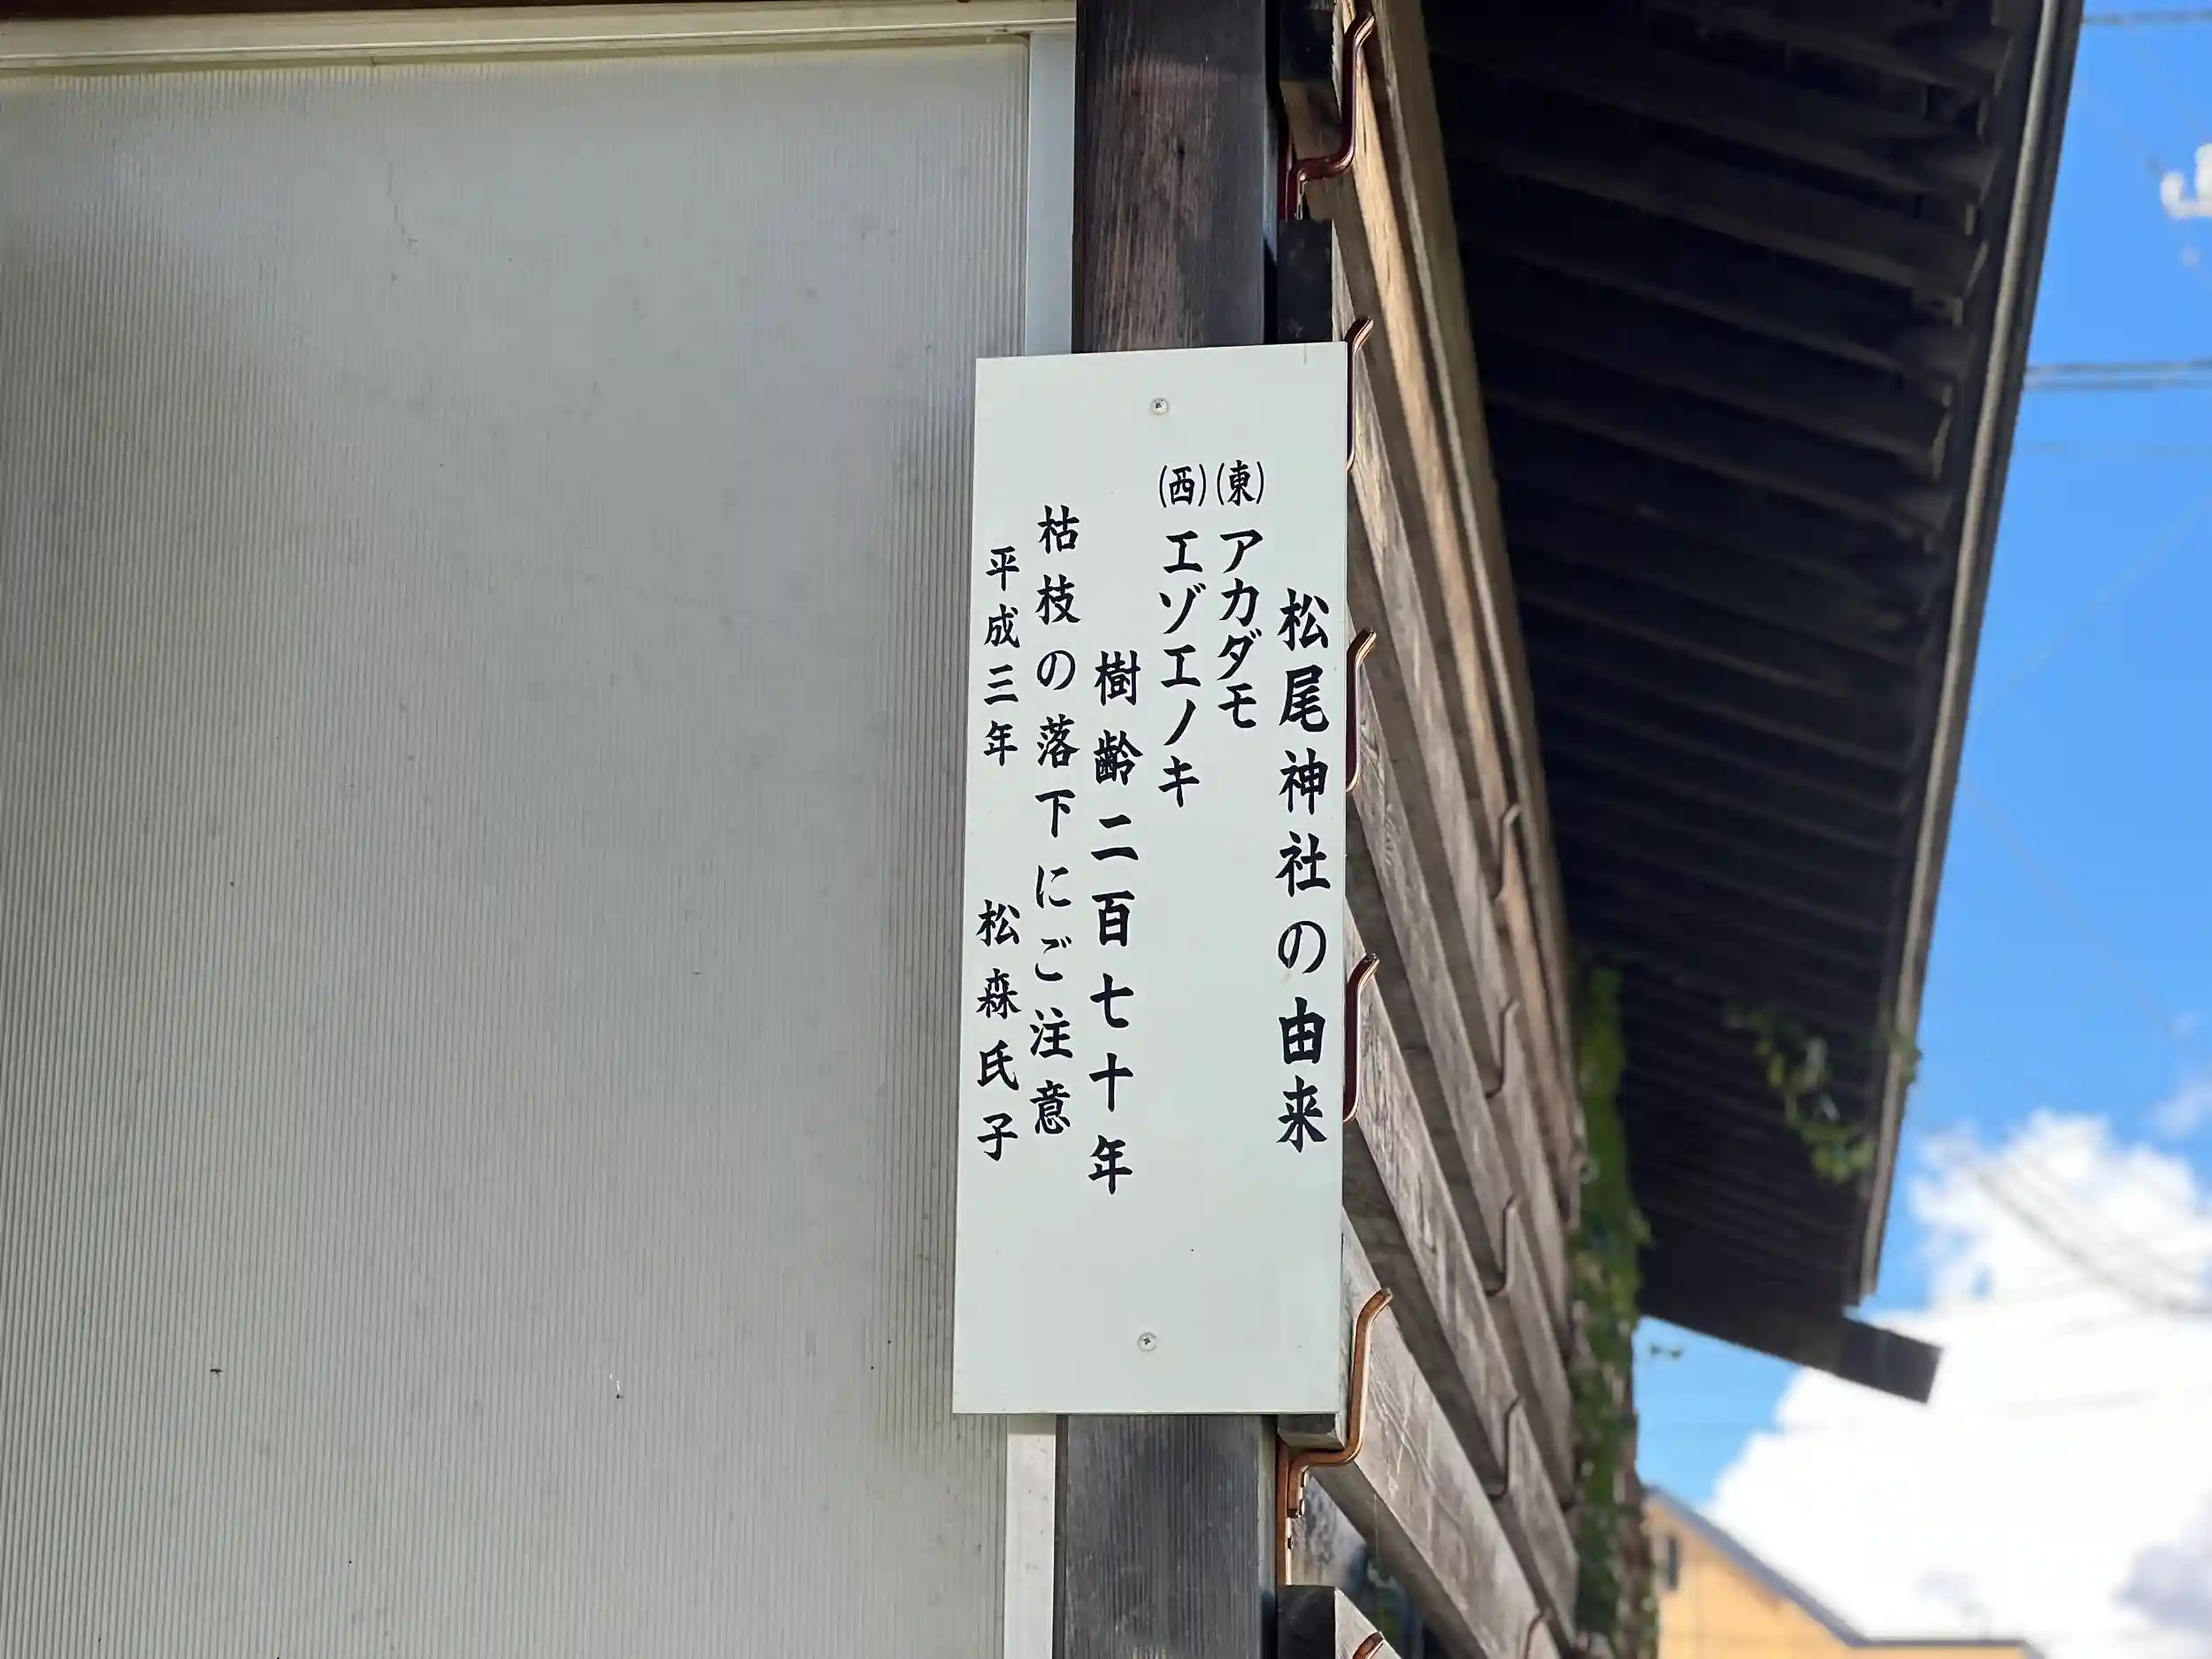 松尾神社の由来
(東)アカダモ
(西)エゾエノキ
樹齢二百七十年
枯枝の落下にご注意
平成三年 松森氏子